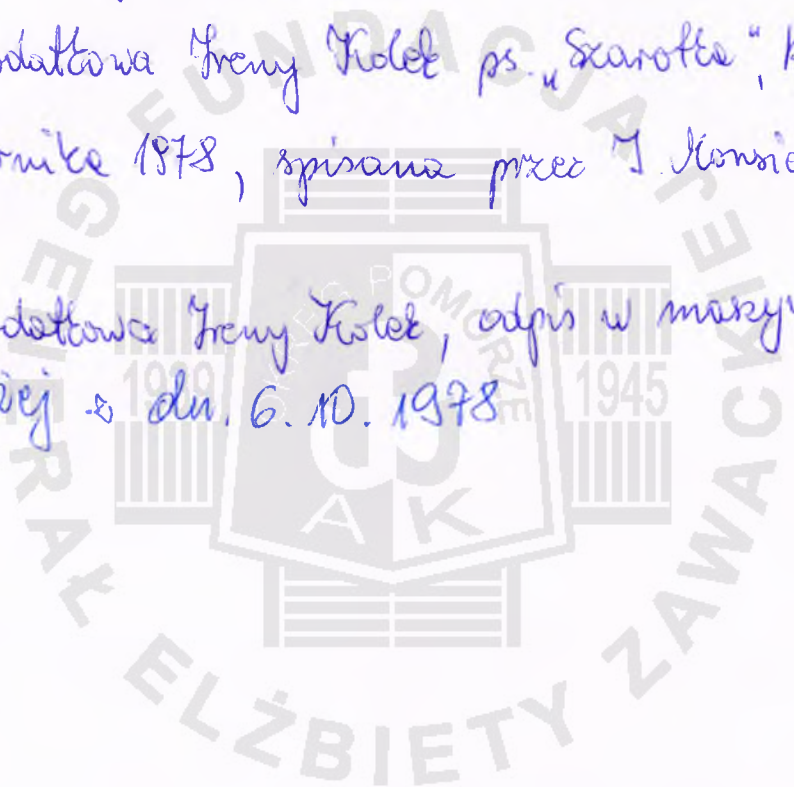 datkowa Ireny Kolek ps. „Szarotka",
rnika 1978, spisana przez J. Konsie
datkowa Ireny Kolek, odpis w maszy
żej z dn. 6.10.1978
FUNDACJA GENERAŁ ELŻBIETY ZAWACKIEJ
OKRĘG POMORZE
1939 1945
AK